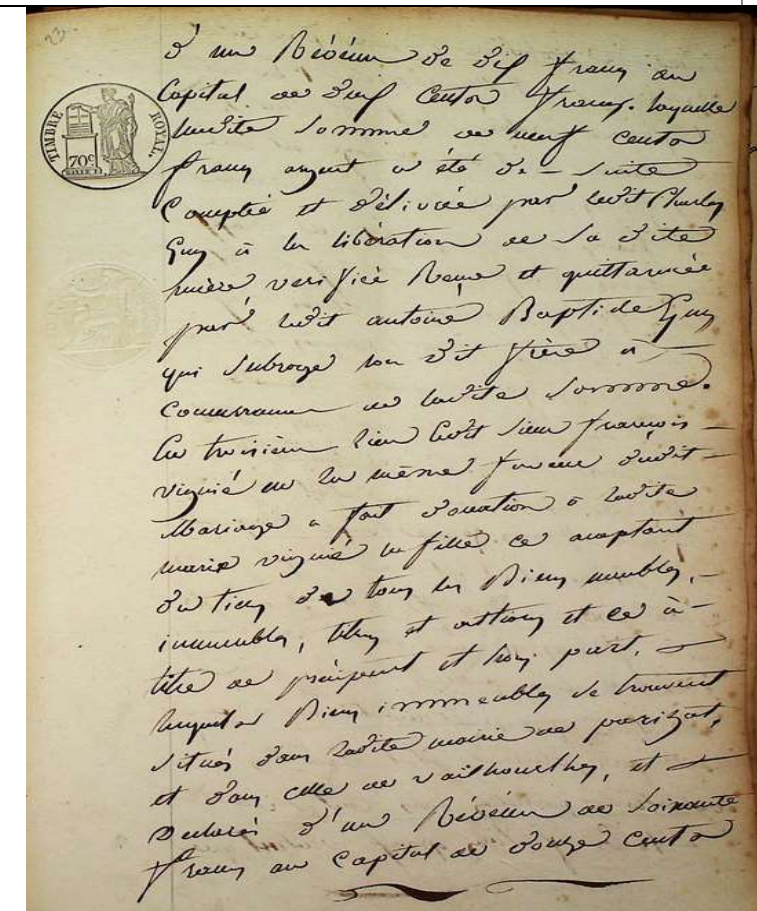 23
TIMBRE ROYAL
70c
d'un Révénu de dix francs au
Capital de deux Cents francs. laquelle
ladite Somme de neuf Cents
francs argent a été de – Suite
Comptée et délivrée par ledit Charles
Guy à la libération de Sa dite
mère vérifiée Reçue et quittancée
par ledit antoine Baptiste Guy
qui Subroge son dit frère à
Concurrance de ladite Somme.
En troisième lieu ledit Sieur françois –
vignié en la même faveur dudit –
Mariage a fait donation à ladite
marie vignié sa fille ce acceptant
du tiers de tous les Biens meubles, –
immeubles, titres et actions et ce à –
titre de préciput et hors part, –
lesquels Biens immeubles se trouvent
Situés dans ladite mairie de parizot,
et dans celle de vailhourlhes, et –
Déclarés d'un Révénu de Soixante
francs au Capital de douze Cents